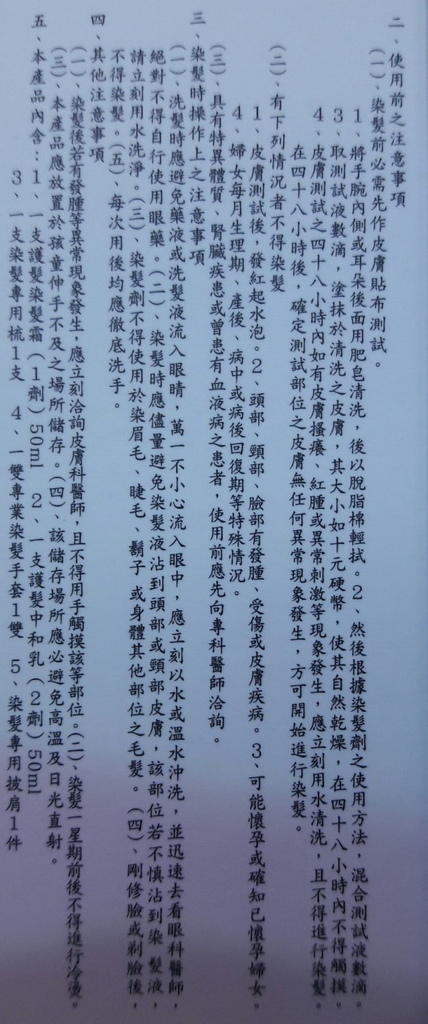 二、使用前之注意事項
(一)、染髮前必需先作皮膚貼布測試。
1、將手腕內側或耳朵後面用肥皂清洗，後以脫脂棉輕拭。2、然後根據染髮劑之使用方法，混合測試液數滴。
3、取測試液數滴，塗抹於清洗之皮膚，其大小如十元硬幣，使其自然乾燥，在四十八小時內不得觸摸。
4、皮膚測試之四十八小時內如有皮膚搔癢、紅腫或異常刺激等現象發生，應立刻用水清洗，且不得進行染髮。
在四十八小時後，確定測試部位之皮膚無任何異常現象發生，方可開始進行染髮。
(二)、有下列情況者不得染髮
1、皮膚測試後，發紅起水泡。2、頭部、頸部、臉部有發腫、受傷或皮膚疾病。3、可能懷孕或確知已懷孕婦女。
4、婦女每月生理期、產後、病中或病後回復期等特殊情況。
(三)、具有特異體質、腎臟疾患或曾患有血液病之患者，使用前應先向專科醫師洽詢。
三、染髮時操作上之注意事項
(一)、洗髮時應避免藥液或洗髮液流入眼睛，萬一不小心流入眼中，應立刻以水或溫水沖洗，並迅速去看眼科醫師，
絕對不得自行使用眼藥。(二)、染髮時應儘量避免染髮液沾到頭部或頸部皮膚，該部位若不慎沾到染髮液，
請立刻用水洗淨。(三)、染髮劑不得使用於染眉毛、睫毛、鬍子或身體其他部位之毛髮。(四)、剛修臉或剃臉後，
不得染髮。(五)、每次用後均應徹底洗手。
四、其他注意事項
(一)、染髮後若有發腫等異常現象發生，應立刻洽詢皮膚科醫師，且不得用手觸摸該等部位。(二)、染髮一星期前後不得進行冷燙。
(三)、本產品應放置於孩童伸手不及之場所儲存。(四)、該儲存場所應必避免高溫及日光直射。
五、本產品內含：1、一支護髮染髮霜(1劑)50ml 2、一支護髮中和乳(2劑)50ml
3、一支染髮專用梳1支 4、一雙專業染髮手套1雙 5、染髮專用披肩1件